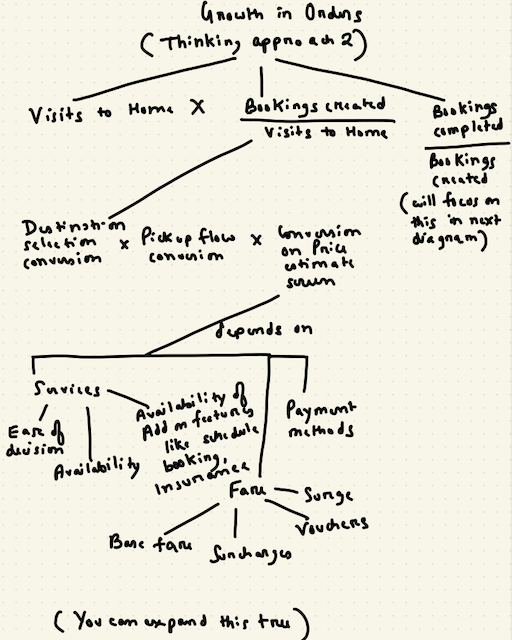 Growth in Orders
(Thinking approach 2)
Visits to Home X
Bookings created
Visits to Home
Bookings
completed
Bookings
created
(will focus on
this in next
diagram)
Destination
selection
conversion
x
Pickup flow
conversion
x
Conversion
on Price
estimate
screen
depends on
Services
Ease of
decision
Availability
Availability of
Add on features
like schedule
booking,
Insurance
Payment
methods
Fare
Surge
Vouchers
Base fare
Surcharges
(You can expand this tree)